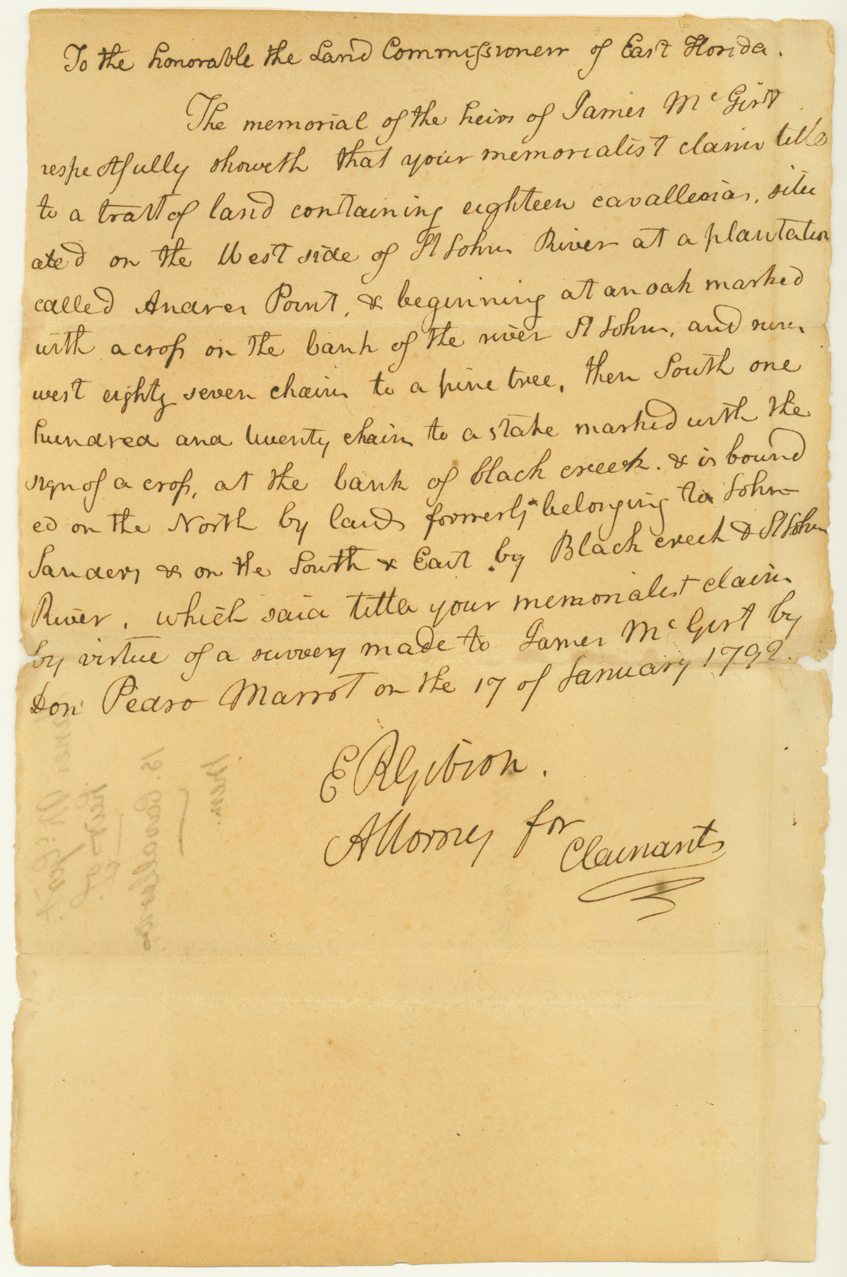 To the honorable the Land Commissioners of East Florida.
The memorial of the heirs of James McGirt
respectfully sheweth that your memorialist claim title
to a tract of land containing eighteen cavallerias, situ
ated on the West side of St Johns River at a plantation
called Andres Point, & beginning at an oak marked
with a cross on the bank of the river St Johns, and runs
west eighty seven chains to a pine tree, then South one
hundred and twenty chains to a stake marked with the
sign of a cross, at the bank of black creek. & is bound
ed on the North by lands formerly belonging to John
Sanders & on the South & East by Black creek & St Johns
River, which said title your memorialist claim
by virtue of a survey made to James McGirt by
Don Pedro Marrot on the 17 of January 1792.
E R Gibson.
Attorney for
Claimants